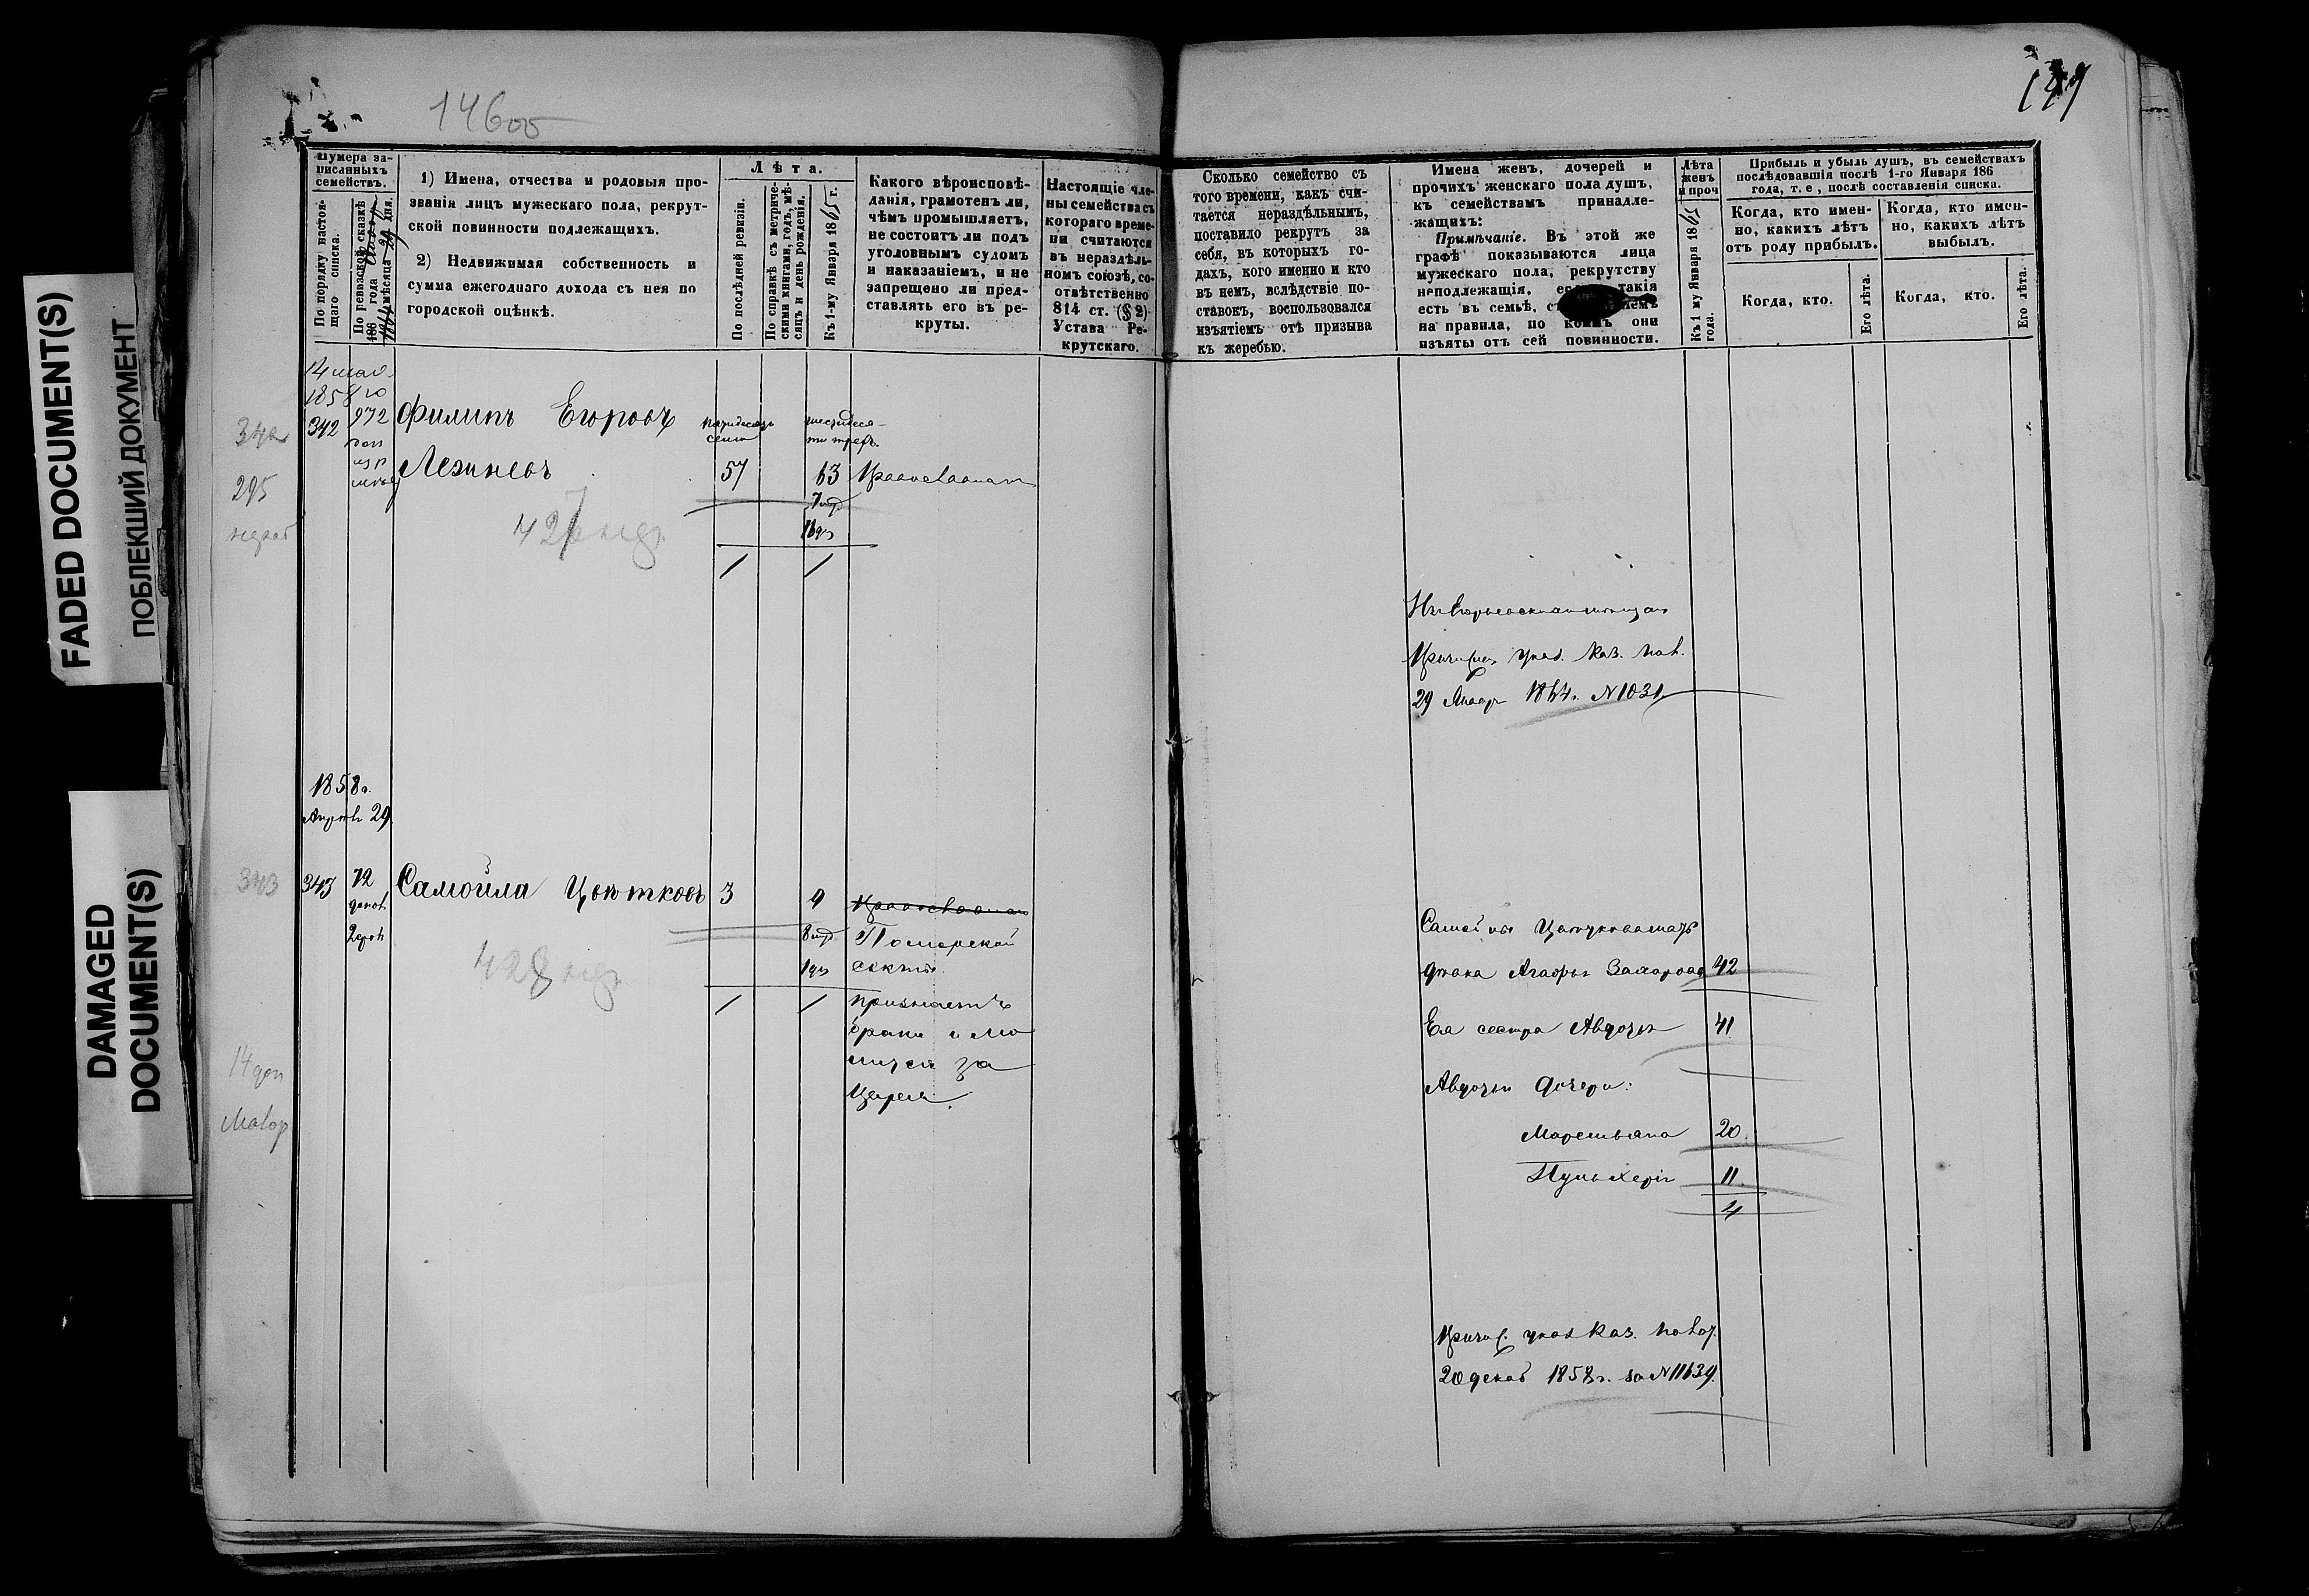 FADED DOCUMENT(S)
ПОБЛЕКШИЙ ДОКУМЕНТ
DAMAGED
DOCUMENT(S)
146об
Нумера за-
писанныхъ
семействъ.
По порядку настоя-
щаго списка.
По ревизской сказкѣ
186 года
мѣсяца дня.
1) Имена, отчества и родовыя про-
званія лицъ мужескаго пола, рекрут-
ской повинности подлежащихъ.
2) Недвижимая собственность и
сумма ежегоднаго дохода съ нея по
городской оцѣнкѣ.
Лѣта.
По послѣдней ревизіи.
По справкѣ съ метриче-
скими книгами, годъ, мѣ-
сяцъ и день рожденія.
Къ 1-му Января 1865 г.
Какого вѣроисповѣ-
данія, грамотенъ ли,
чѣмъ промышляетъ,
не состоитъ ли подъ
уголовнымъ судомъ
и наказаніемъ, и не
запрещено ли пред-
ставлять его въ ре-
круты.
Настоящіе чле-
ны семейства съ
котораго време-
ни считаются
въ нераздѣль-
номъ союзѣ, со-
отвѣтственно
814 ст. (§ 2)
Устава Ре-
крутскаго.
342
295
342
972
Филипъ Егоровъ
Лезиневъ
пятьдесятъ
семь
57
шестьдеся-
ти трехъ
63
427
1858г.
Апрѣля 29
343
343
72
Самойла Цвѣтковъ
3
9
Поморской
секты.
признаетъ
браки и мо
лится за
Царя.
428
14
Сколько семейство съ
того времени, какъ счи-
тается нераздѣльнымъ,
поставило рекрутъ за
себя, въ которыхъ го-
дахъ, кого именно и кто
въ немъ, вслѣдствіе по-
ставокъ, воспользовался
изъятіемъ отъ призыва
къ жеребью.
Имена женъ, дочерей и
прочихъ женскаго пола душъ,
къ семействамъ принадле-
жащихъ:
Примѣчаніе. Въ этой же
графѣ показываются лица
мужескаго пола, рекрутству
неподлежащія, такія
есть въ семьѣ,
на правила, по коимъ они
изъяты отъ сей повинности.
Лѣта
женъ
и проч
Къ 1 му Января 1865
года.
Прибыль и убыль душъ, въ семействахъ
послѣдовавшія послѣ 1-го Января 186
года, т. е, послѣ составленія списка.
Когда, кто имен-
но, какихъ лѣтъ
отъ роду прибылъ.
Когда, кто имен-
но, какихъ лѣтъ
выбылъ.
Когда, кто.
Его лѣта.
Когда, кто.
Его лѣта.
Причислен указ. Каз. Пал.
29 Январ 1864г. N 1031
Самойлы Цвѣткова мать
Агафья Захарова 42
Ея сестра Авдотья 41
Авдотьи дочери:
Маремьяна 20
Пульхерія 11
4
Причис. указ Каз. Палат.
20 декаб 1858г. за N 11639.